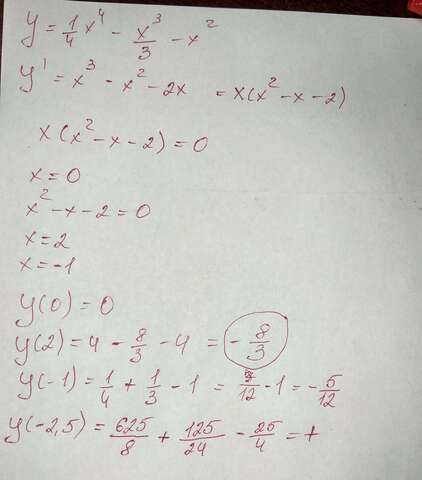 y = 1/4 x^4 - x^3/3 - x^2
y' = x^3 - x^2 - 2x = x(x^2 - x - 2)
x(x^2 - x - 2) = 0
x = 0
x^2 - x - 2 = 0
x = 2
x = -1
y(0) = 0
y(2) = 4 - 8/3 - 4 = -8/3
y(-1) = 1/4 + 1/3 - 1 = 7/12 - 1 = -5/12
y(-2,5) = 625/8 + 125/24 - 25/4 = +